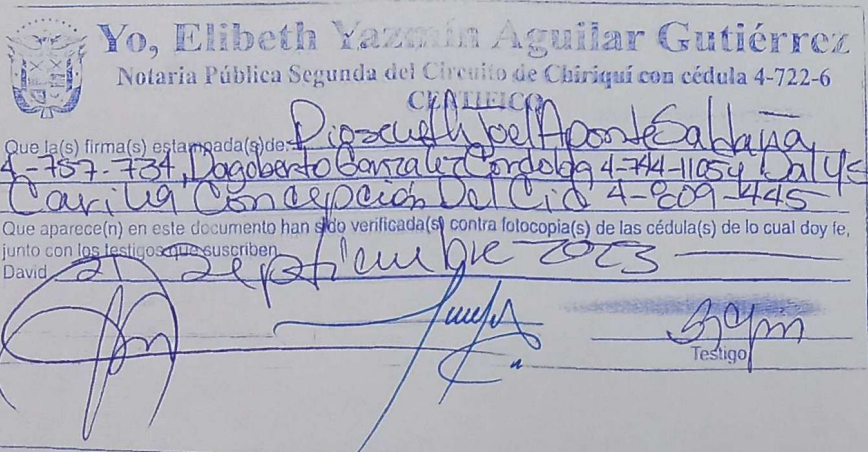 Yo, Elibeth Yazmín Aguilar Gutiérrez
Notaria Pública Segunda del Circuito de Chiriquí con cédula 4-722-6
CERTIFICO
Que la(s) firma(s) estampada(s) de: Joel Aponte Saldaña,
4-757-734, Dagoberto González Córdoba 4-744-1105 y Dalys
Concepción Del Cid 4-809-445
Que aparece(n) en este documento han sido verificada(s) contra fotocopia(s) de las cédula(s) de lo cual doy fe,
junto con los testigos que suscriben
David 21 Septiembre 2023
Testigo